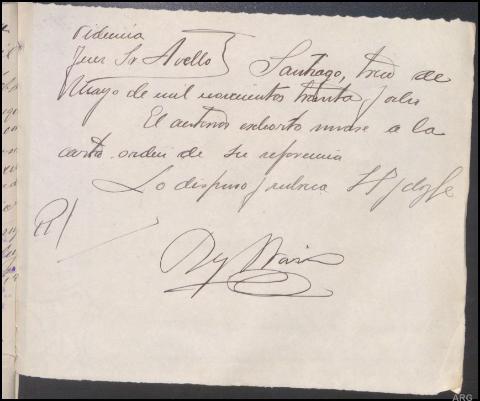 Providencia
Juez Sr Avello } Santiago, trece de
Mayo de mil novecientos treinta y ocho
El anterior exhorto unase a la
carta-orden de su referencia
Lo dispuso y rubrica S Sª y doy fe
R/
ARG